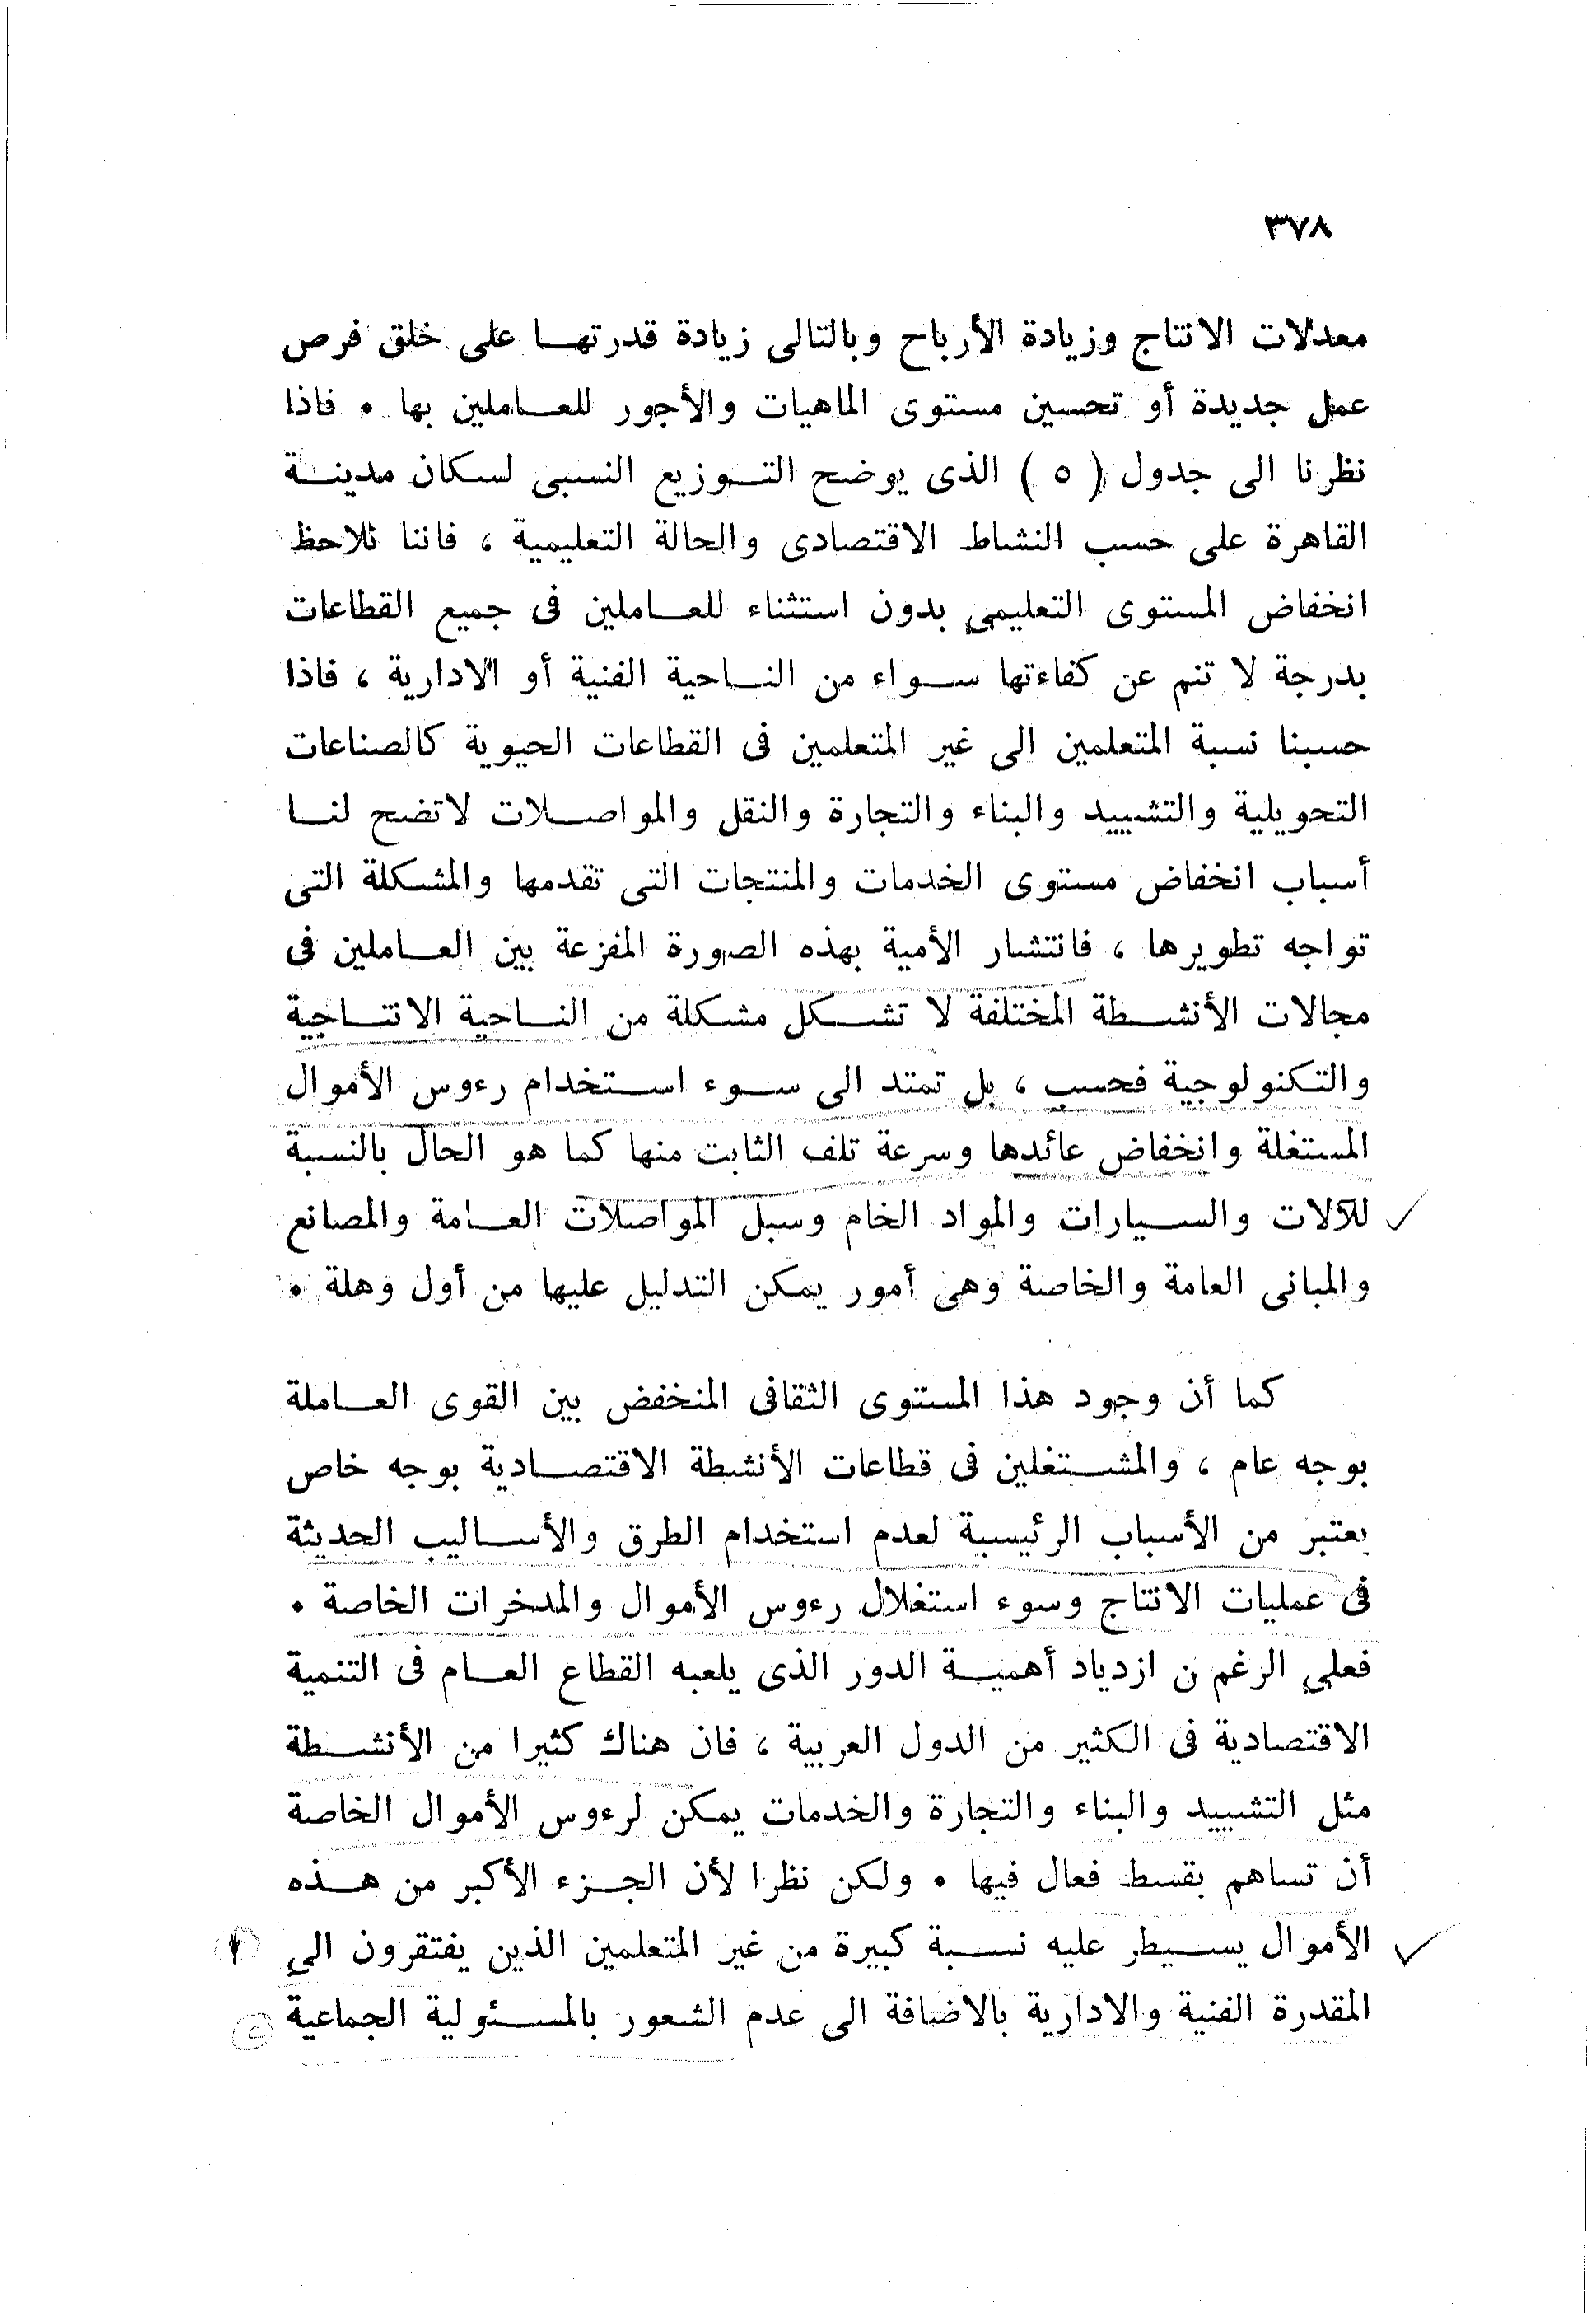 ٣٧٨
معدلات الانتاج وزيادة الأرباح وبالتالى زيادة قدرتها على خلق فرص
عمل جديدة أو تحسين مستوى الماهيات والأجور للعاملين بها . فاذا
نظرنا الى جدول ( ٥ ) الذى يوضح التوزيع النسبى لسكان مدينة
القاهرة على حسب النشاط الاقتصادى والحالة التعليمية ، فاننا نلاحظ
انخفاض المستوى التعليمى بدون استثناء للعاملين فى جميع القطاعات
بدرجة لا تنم عن كفاءتها سواء من الناحية الفنية أو الادارية ، فاذا
حسبنا نسبة المتعلمين الى غير المتعلمين فى القطاعات الحيوية كالصناعات
التحويلية والتشييد والبناء والتجارة والنقل والمواصلات لاتضح لنا
أسباب انخفاض مستوى الخدمات والمنتجات التى تقدمها والمشكلة التى
تواجه تطويرها ، فانتشار الأمية بهذه الصورة المفزعة بين العاملين فى
مجالات الأنشطة المختلفة لا تشكل مشكلة من الناحية الانتاجية
والتكنولوجية فحسب ، بل تمتد الى سوء استخدام رءوس الأموال
المستغلة وانخفاض عائدها وسرعة تلف الثابت منها كما هو الحال بالنسبة
للآلات والسيارات والمواد الخام وسبل المواصلات العامة والمصانع
والمبانى العامة والخاصة وهى أمور يمكن التدليل عليها من أول وهلة .
كما أن وجود هذا المستوى الثقافى المنخفض بين القوى العاملة
بوجه عام ، والمشتغلين فى قطاعات الأنشطة الاقتصادية بوجه خاص
يعتبر من الأسباب الرئيسية لعدم استخدام الطرق والأساليب الحديثة
فى عمليات الانتاج وسوء استغلال رءوس الأموال والمدخرات الخاصة .
فعلى الرغم ن ازدياد أهمية الدور الذى يلعبه القطاع العام فى التنمية
الاقتصادية فى الكثير من الدول العربية ، فان هناك كثيرا من الأنشطة
مثل التشييد والبناء والتجارة والخدمات يمكن لرءوس الأموال الخاصة
أن تساهم بقسط فعال فيها . ولكن نظرا لأن الجزء الأكبر من هذه
الأموال يسيطر عليه نسبة كبيرة من غير المتعلمين الذين يفتقرون الى
المقدرة الفنية والادارية بالاضافة الى عدم الشعور بالمسئولية الجماعية